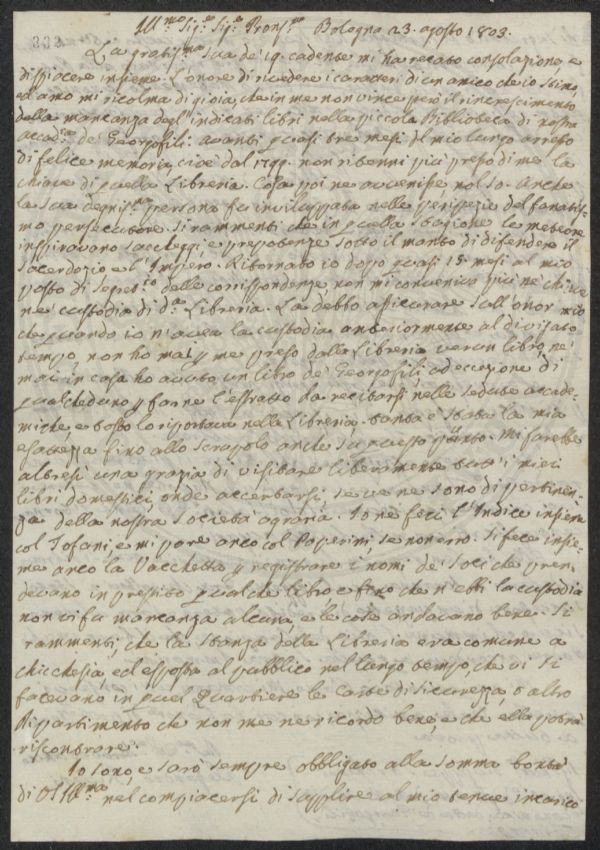 Ill.mo Sig.e Sig.e Pron.mo Bologna 23. agosto 1803.
La gratis.ma Sua de' 19. cadente mi ha recato consolazione e
dispiacere insieme. L'onore di rivedere i caratteri di un amico che io stimo,
ed amo mi ricolma di gioia, che in me non vince però il rincrescimento
della mancanza degl'indicati libri nella piccola Biblioteca di nostra
accad.ia de' Georgofili. avanti quasi tre mesi del mio lungo arresto
di felice memoria, cioè dal 1799. non ritenni più presso di me la
chiave di quella Libreria. Cosa poi ne avvenisse nol so. Anche
la sua degnis.ma persona fu inviluppata nelle peripezie del fanatis-
mo persecutore. Si rammenti che in quella stagione le meteore
inspiravano saccheggi, e prepotenze sotto il manto di difendere il
sacerdozio e l'Impero. Ritornato io dopo quasi 15. mesi al mio
posto di Segret.io delle corrispondenze non mi conveniva più nè chiave
nè custodia di d.a Libreria. La debbo assicurare sull'onor mio
che quando io n'avea la custodia anteriormente al divisato
tempo, non ho mai p me preso dalla Libreria verun libro, nè
mai in casa ho avuto un libro de' Georgofili ad eccezione di
qualcheduno p farne l'estratto da recitarsi nelle sedute accade-
miche, e tosto lo riportava nella Libreria. tanta è stata la mia
esattezza fino allo scrupolo anche su questo punto. Mi farebbe
altresì una grazia di visitare liberamente tutt'i miei
libri domestici, onde accertarsi, se ve ne sono di pertinen-
za della nostra Società agraria. Io ne feci l'Indice insieme
col Tofani, e mi pare anco col Paperini, se non erro. Si fece insie-
me anco la Vacchetta p registrare i nomi de' Soci che pren-
devano in prestito qualche libro e fino che n'ebbi la custodia
non vi fu mancanza alcuna, e le cose andavano bene. Si
rammenti, che la stanza della Libreria era comune a
chicchesia, ed esposta al pubblico nel lungo tempo, che vi si
facevano in quel Quartiere le carte di Sicurezza, o altro
dipartimento che non me ne ricordo bene, e che ella potrà
riscontrare.
Io sono, e sarò sempre obbligato alla somma bontà
di VS Ill.ma nel compiacersi di supplire al mio tenue incarico